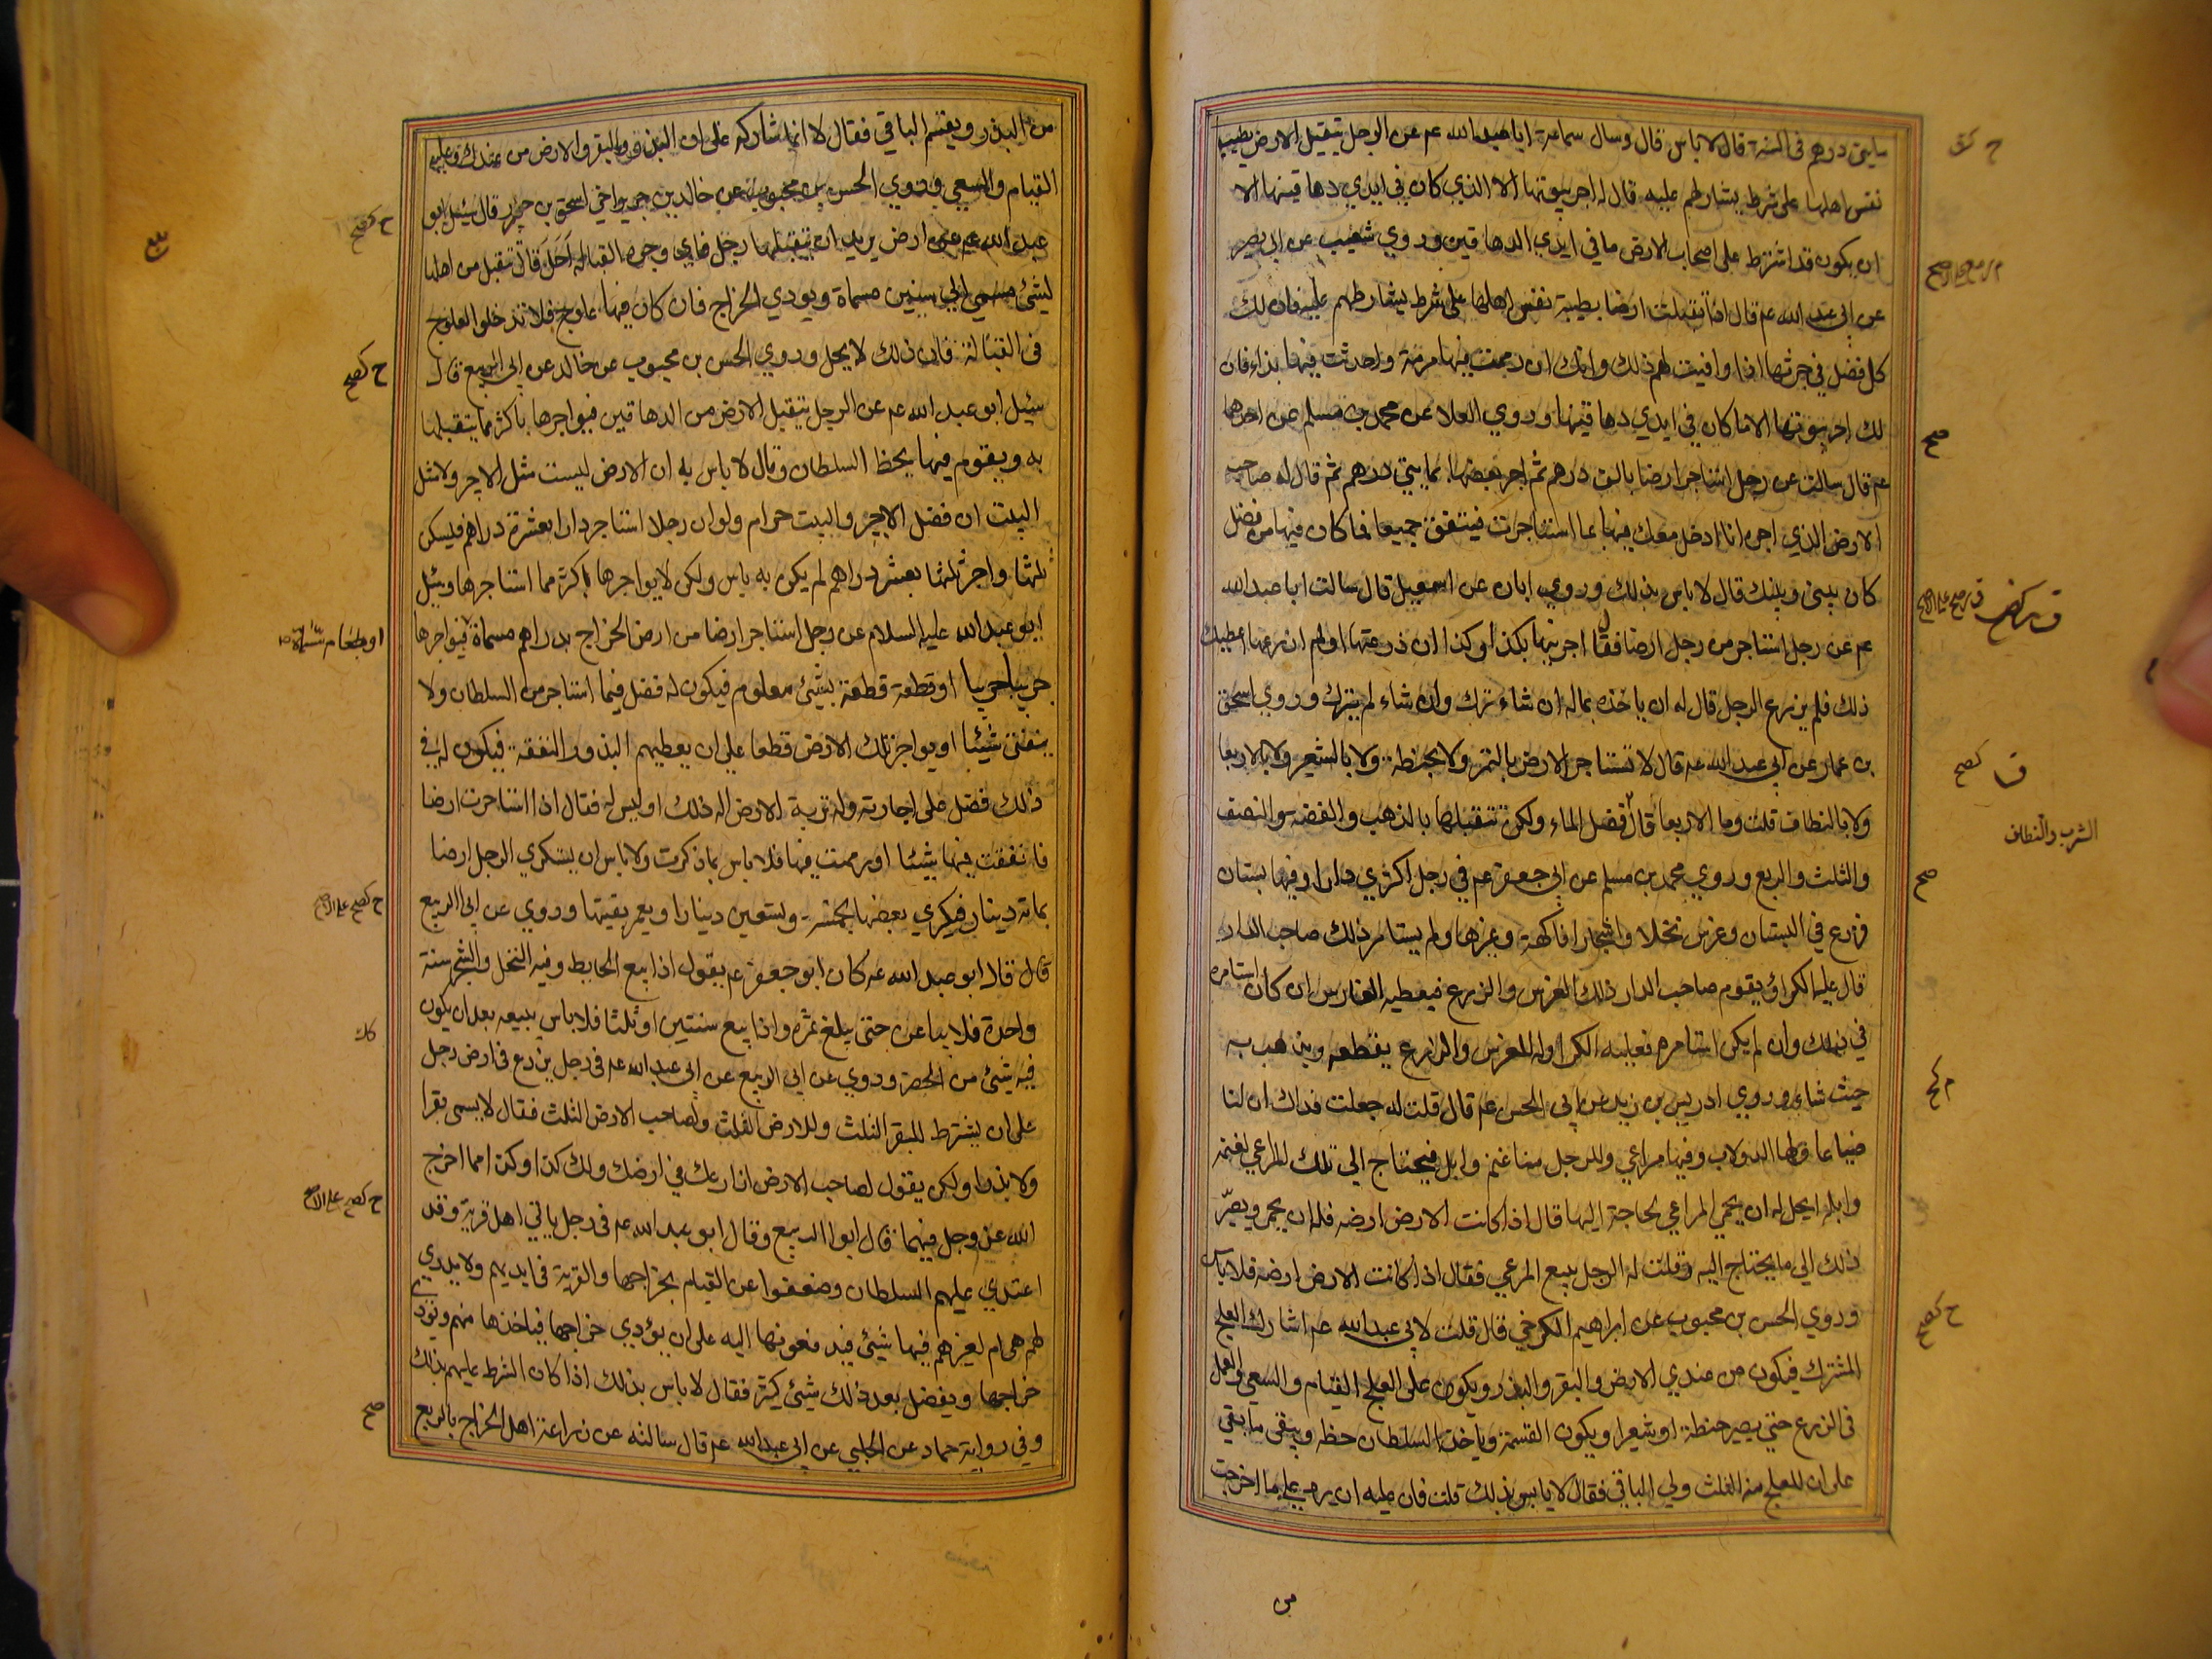 مايتى درهم فى السنة قال لا باس قال وسال سماعة ابا عبد الله عم عن الرجل يتقبل الارض بطيب
نفس اهلها على شرط يشارطهم عليه قال له اجر بيوتها الا الذي كان في ايدي دهاقينها الا
ان يكون قد اشترط على اصحاب الارض ما في ايدي الدهاقين وروي شعيب عن ابي بصير
عن ابي عبد الله عم قال اذا تقبلت ارضا بطيبة نفس اهلها على شرط يشارطهم عليه فان لك
كل فضل في حرثها اذا وافيت لهم ذلك وانك ان رممت فيها مرمة واحدثت فيها بناء فان
لك اجر بيوتها الا ما كان في ايدي دهاقينها وروي العلا عن محمد بن مسلم عن احدهما
عم قال سالت عن رجل استاجر ارضا بالف درهم ثم اجر بعضها بمايتي درهم ثم قال له صاحب
الارض الذي اجره انا ادخل معك فيها بما استاجرت فينفق جميعا فما كان فيها من فضل
كان بيني وبينك قال لا باس بذلك وروي ابان عن اسمعيل قال سالت ابا عبد الله
عم عن رجل استاجر من رجل ارضا فقال اجرنيها بكذا وكذا ان زرعتها اولم ازرعها اعطيك
ذلك فلم يزرع الرجل قال له ان ياخذه بماله ان شاء ترك وان شاء لم يترك وروي اسحق
بن عمار عن ابي عبد الله عم قال لا تستاجر الارض بالتمر ولا بحنطة ولا بالشعير ولا بالاربعا
ولا بالنطاف قلت وما الاربعا قال فضل الماء ولكن تتقبلها بالذهب والفضة والنصف
والثلث والربع وروي محمد بن مسلم عن ابي جعفر عم في رجل اكترى دارا وفيها بستان
فزرع في البستان وغرس نخلا واشجارا فاكهة وغيرها ولم يستامر ذلك صاحب الدار
قال عليه الكراو يقوم صاحب الدار ذلك الغرس والزرع فيعطيه الغارس ان كان استامره
في ذلك وان لم يكن استامره فعليه الكرا وله الغرس والزرع يقطعه ويذهب به
حيث شاء وروي ادريس بن زيد عن ابي الحسن عم قال قلت له جعلت فداك ان لنا
ضياعا ولها الدولاب وفيها مراعي وللرجل منا غنم وابل فيحتاج الى تلك المراعي لغنمه
وابله ايحل له ان يحمي المراعي لحاجة اليها قال اذا كانت الارض ارضه فله ان يحمي ويصيّر
ذلك الى ما يحتاج اليه وقلت له الرجل يبيع المرعي فقال اذا كانت الارض ارضه فلا باس
وروي الحسن بن محبوب عن ابراهيم الكرخي قال قلت لابي عبد الله عم اشارك العلج
المشرك فيكون من عندي الارض والبقر والبذر ويكون على العلج القيام والسعي والعمل
فى الزرع حتى يصير حنطة او شعيرا ويكون القسمة وياخذ السلطان حظه ويبقى ما بقي
على ان للعلج منه الثلث ولي الباقي فقال لا باس بذلك قلت فان عليه ان يرد على مما اخرجت
من
الشرب والنطاف
صح
من البذر ويقسم الباقي فقال لا انما شاركه على ان البذر والبقر والارض من عندك وعليه
القيام والسعي وروي الحسن بن محبوب عن خالد بن جرير اخي اسحق بن جرير قال سئل ابو
عبد الله عم عن ارض يريد ان يتقبلها رجل فاي وجوه القبالة احل قال تتقبل من اهلها
لشئ مسمى الى سنين مسماة ويودي الخراج فان كان فيها علوج فلا تدخلوا العلوج
فى القبالة فان ذلك لا يحل وروي الحسن بن محبوب عن خالد عن ابى الربيع قال
سئل ابو عبد الله عم عن الرجل يتقبل الارض من الدهاقين فيواجرها باكثر مما يتقبلها
به ويقوم فيها بحظ السلطان وقال لا باس به ان الارض ليست مثل الاجير ولا مثل
البيت ان فضل الاجير والبيت حرام ولو ان رجلا استاجر دارا بعشرة دراهم فيسكن
ثلثها واجر ثلثها بعشر دراهم لم يكن به باس ولكن لا يواجرها باكثر مما استاجرها وسئل
ابو عبد الله عليه السلام عن رجل استاجر ارضا من ارض الخراج بدراهم مسماة فيواجرها
جريبا جريبا او قطعة قطعة بشئ معلوم فيكون له فضل فيما استاجر من السلطان ولا
ينفق شيئا او يواجر تلك الارض قطعا على ان يعطيهم البذر والنفقة فيكون له في
ذلك فضل على اجارته وله تربة الارض اله ذلك او ليس له فقال اذا استاجرت ارضا
فانفقت فيها شيئا او رممت فيها فلا باس بما ذكرت ولا باس ان يستكري الرجل ارضا
بماية دينار فيكري بعضها بخمسة وتسعين دينارا ويعمر بقيتها وروي عن ابى الربيع
قال قال ابو عبد الله عم كان ابو جعفر عم يقول اذا بيع الحايط وفيه النخل والشجر سنة
واحدة فلا يباعن حتى يبلغ ثمره واذا بيع سنتين او ثلثا فلا باس ببيعه بعد ان يكون
فيه شئ من الخضرة وروي عن ابي الربيع عن ابى عبد الله عم فى رجل يزرع فى ارض رجل
على ان يشترط للبقر الثلث وللارض الثلث ولصاحب الارض الثلث فقال لا يسمى بقرا
ولا بذرا ولكن يقول لصاحب الارض ازارعك في ارضك ولك كذا وكذا مما اخرج
الله عز وجل فيهما قال ابو الربيع وقال ابو عبد الله عم فى رجل ياتي اهل قرية وقد
اعتدي عليهم السلطان وضعفوا عن القيام بخراجها والقرية فى ايديهم ولا يدري
لهم هي ام لغيرهم فيها شئ فيدفعونها اليه على ان يؤدي خراجها فياخذها منهم ويودي
خراجها ويفضل بعد ذلك شئ كثير فقال لا باس بذلك اذا كان الشرط عليهم بذلك
وفي رواية حماد عن الحلبي عن ابى عبد الله عم قال سالته عن زراعة اهل الخراج بالربع
صح